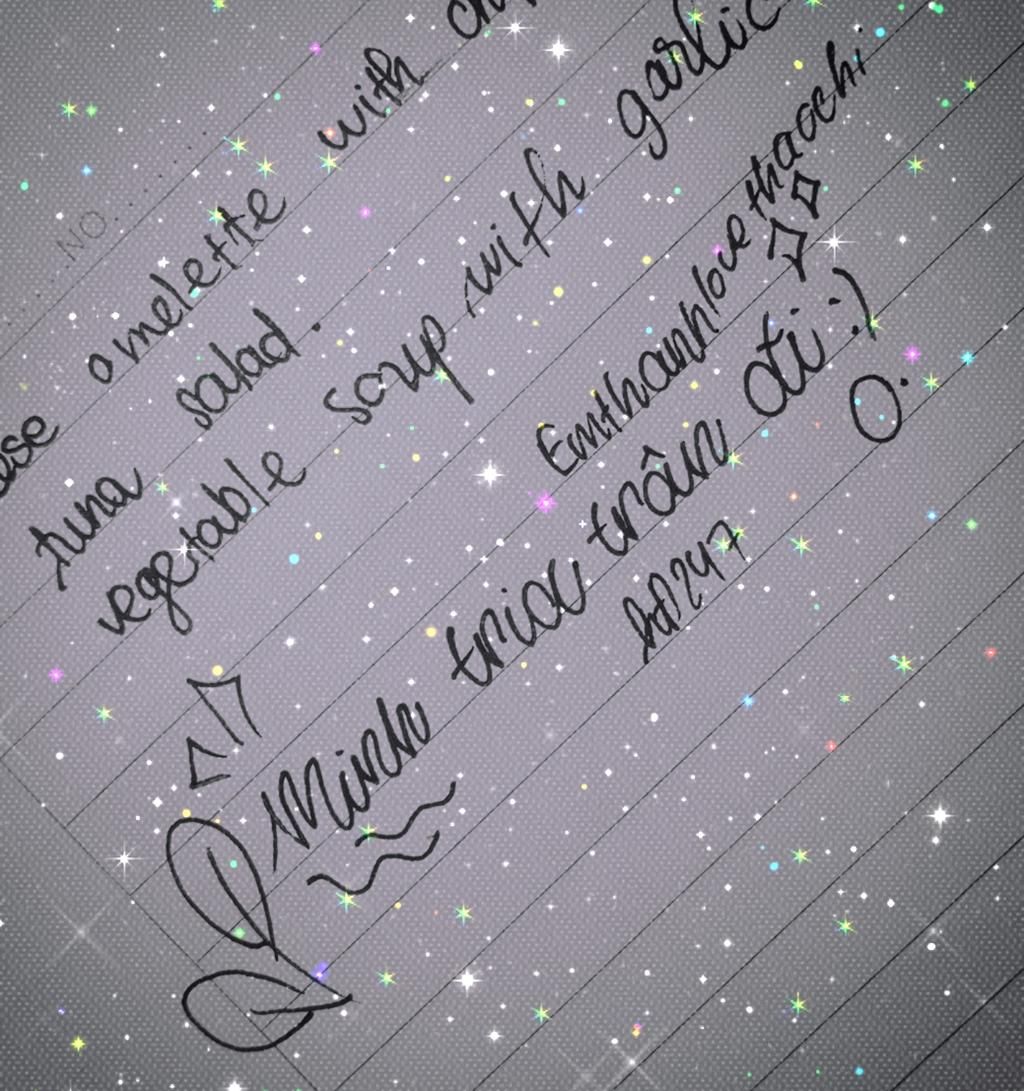 NO
omelette with
tuna salad.
vegetable soup with garlic
Emthanhlovethaochi
Minh triou trôm oti :)
O.
247